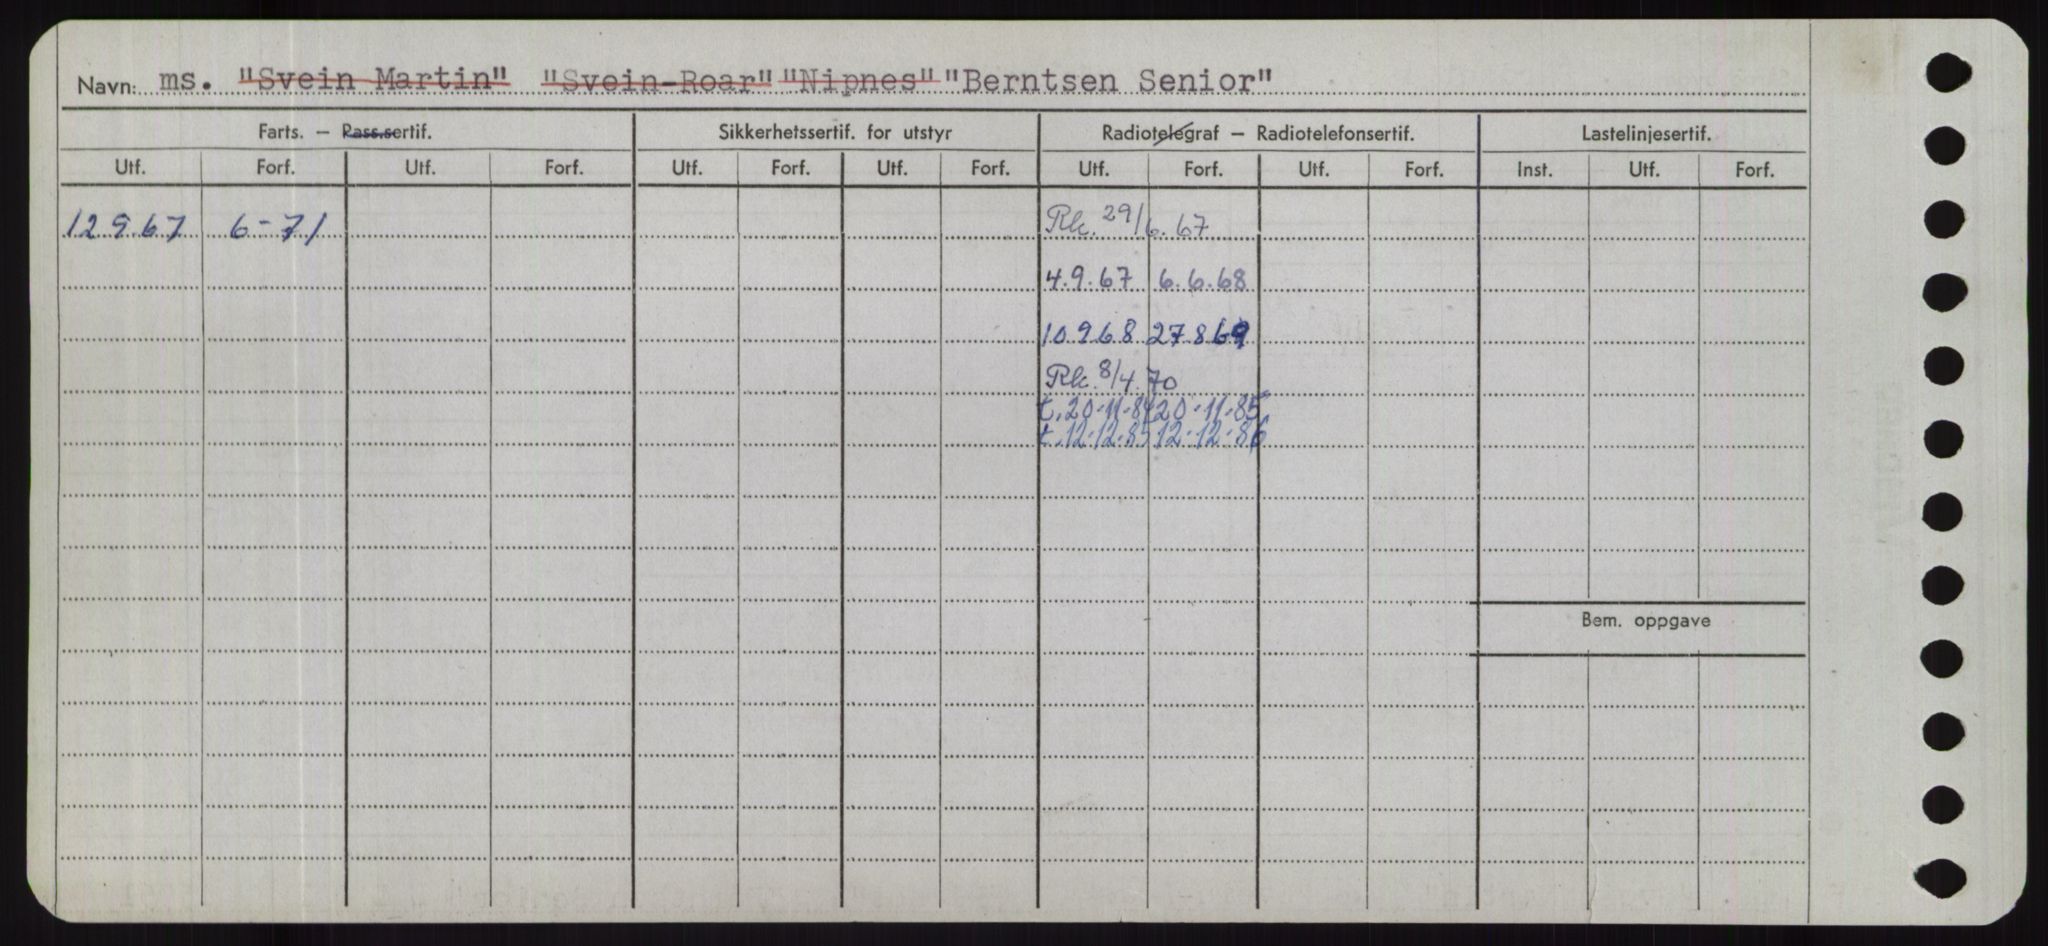 Navn: ms. "Svein Martin" "Svein-Roar" "Nipnes" "Berntsen Senior"
Farts. — Pass.sertif. Sikkerhetssertif. for utstyr Radiotelegraf — Radiotelefonsertif. Lastelinjesertif.
Utf. Forf. Utf. Forf. Utf. Forf. Utf. Forf. Utf. Forf. Utf. Forf. Inst. Utf. Forf.
12 9 67 6-71 Rk. 29/6.67
4.9.67 6.6.68
10 9 68 27 8 69
Rk. 8/4.70
t. 20-11-84 20-11-85
t. 12-12-85 12-12-86
Bem. oppgave